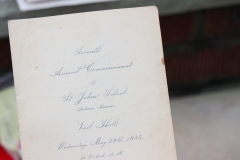 Seventh
Annual Commencement
of
St. John's School
Salina, Kansas
Vail Hall
Wednesday, May 29th, 1895,